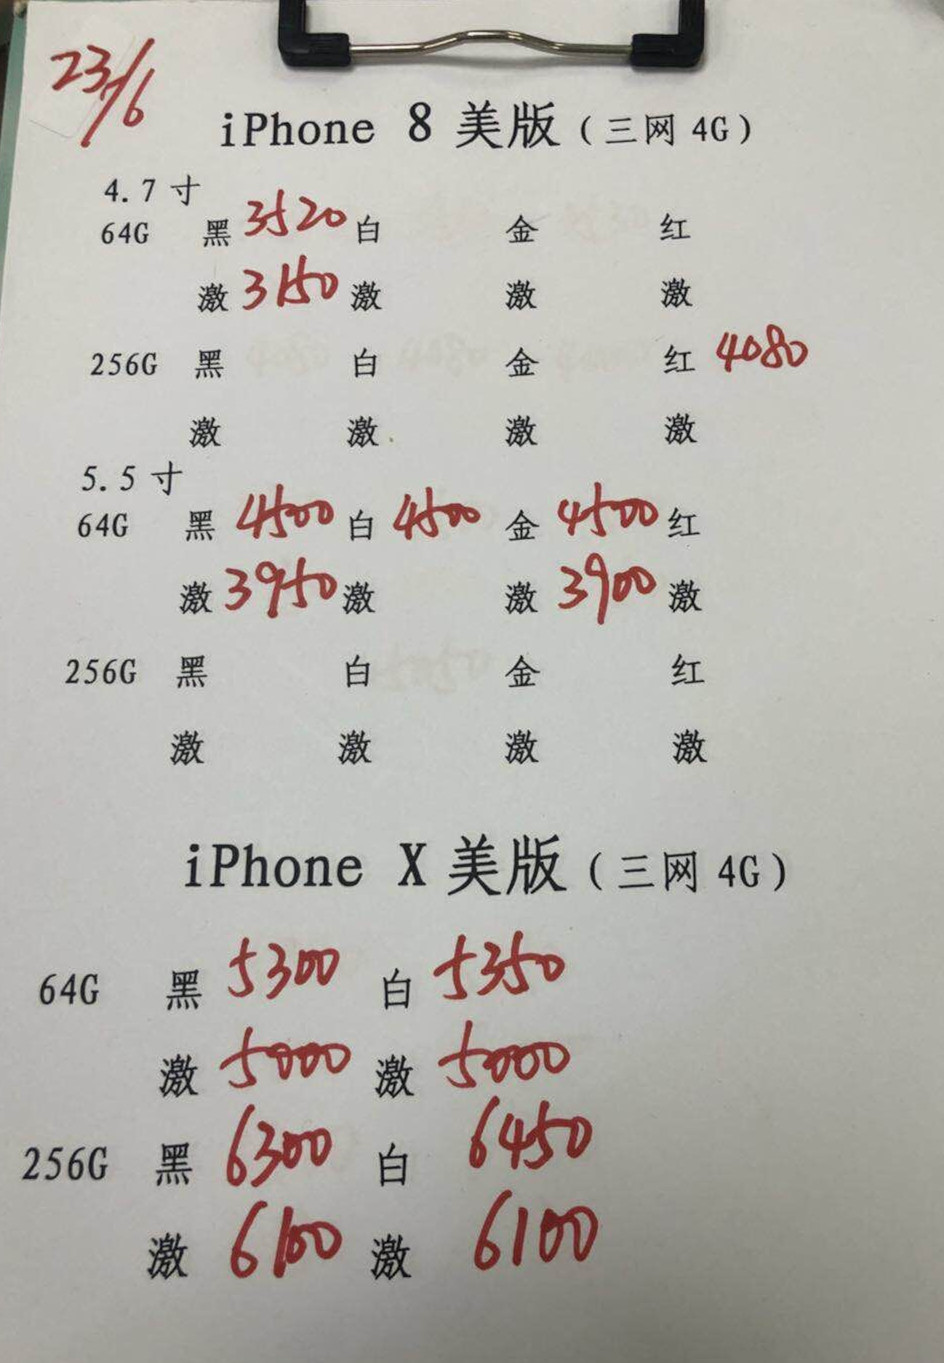 23/6
iPhone 8 美版（三网 4G）
4.7 寸
64G 黑 3520 白 金 红
激 3150 激 激 激
256G 黑 白 金 红 4080
激 激 激 激
5.5 寸
64G 黑 4500 白 4500 金 4500 红
激 3950 激 激 3900 激
256G 黑 白 金 红
激 激 激 激
iPhone X 美版（三网 4G）
64G 黑 5300 白 5350
激 5000 激 5000
256G 黑 6300 白 6450
激 6100 激 6100